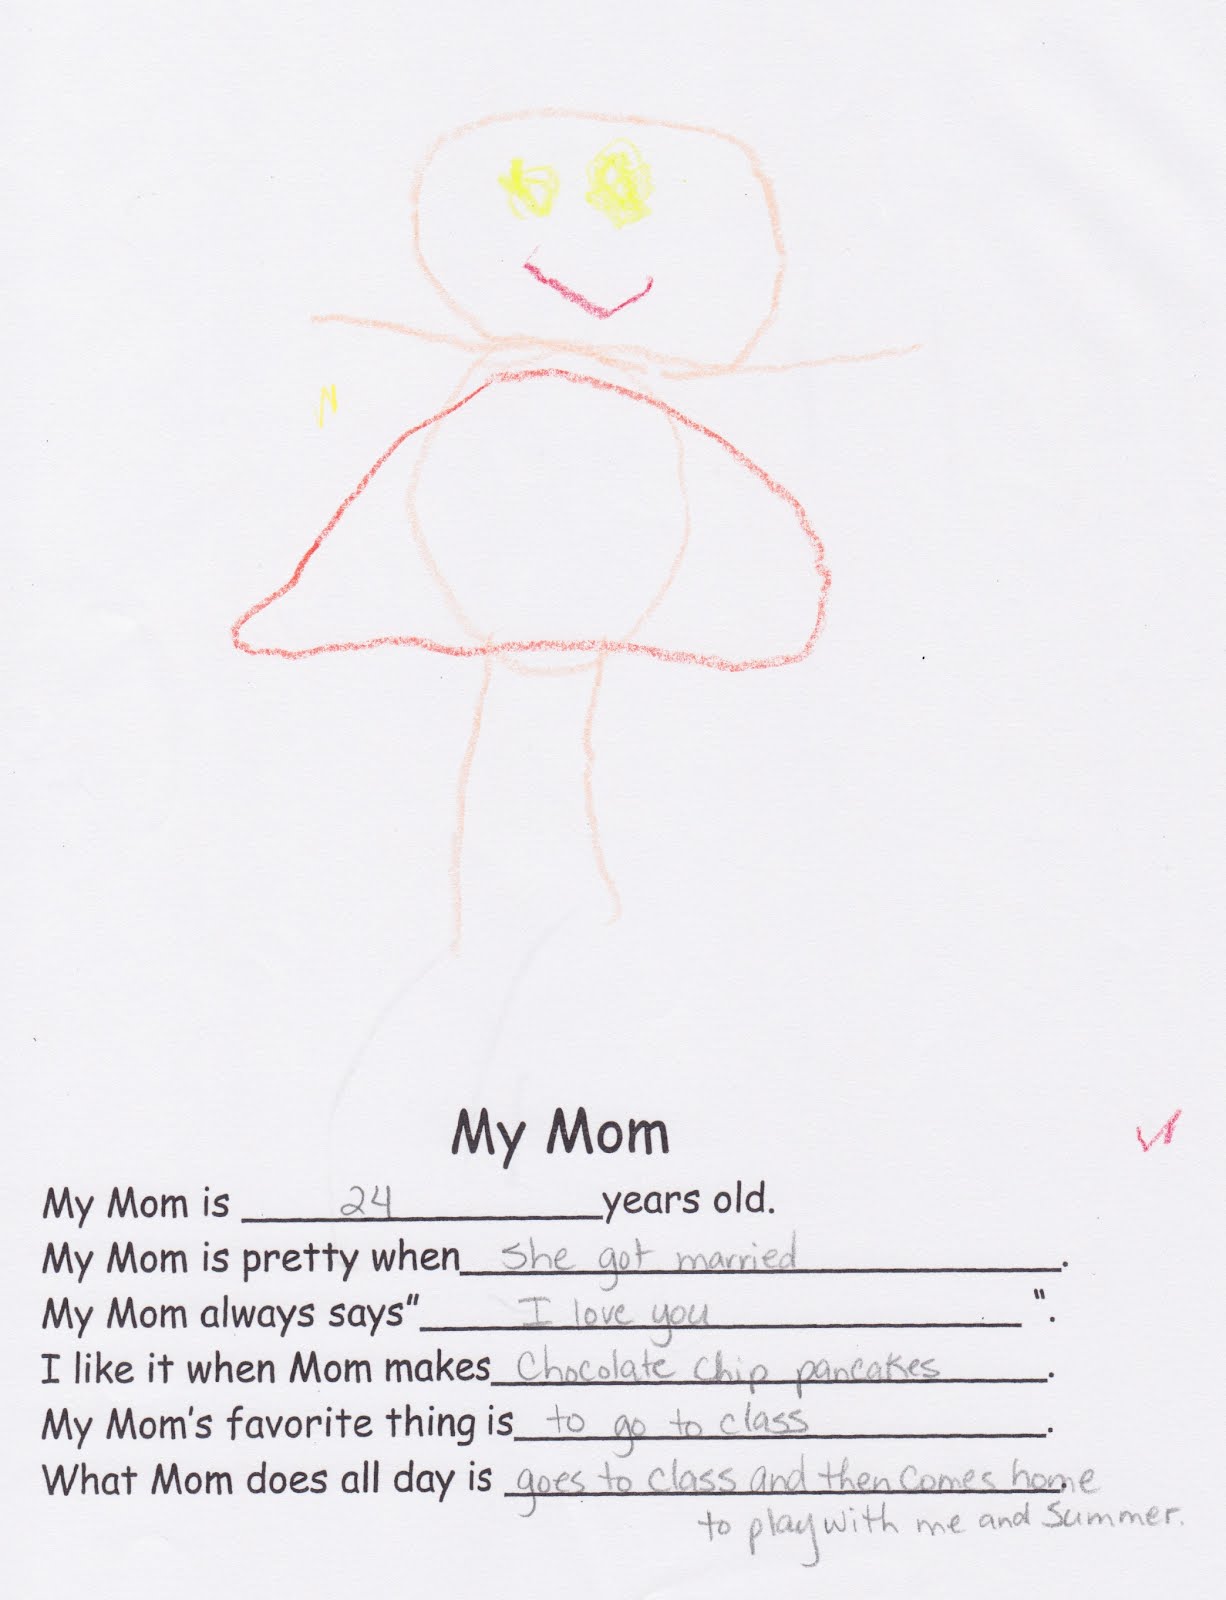 My Mom
My Mom is 24 years old.
My Mom is pretty when she got married.
My Mom always says" I love you ".
I like it when Mom makes Chocolate Chip pancakes.
My Mom's favorite thing is to go to class.
What Mom does all day is goes to class and then comes home.
to play with me and Summer.